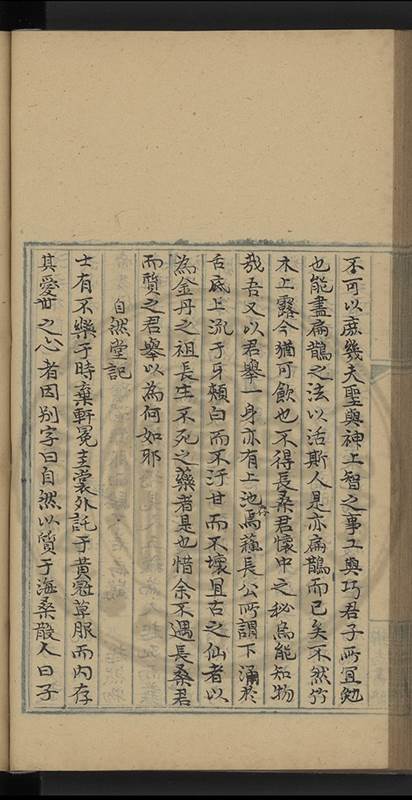 不可以庶幾夫聖與神上智之事工與巧君子所宜勉
也能盡扁鵲之法以活斯人是亦扁鵲而已矣不然竹
木上露今猶可飲也不得長桑君懷中之秘烏能知物
哉吾又以君舉一身亦有上池焉蘓長公所謂下涌於
舌底上流于牙頰白而不汙甘而不壞且古之仙者以
為金丹之祖長生不死之藥者是也惜余不遇長桑君
而質之君舉以為何如耶
自然堂記
士有不樂于時棄軒冕圭裳外託于黃冠草服而内存
其愛世之心者因别字曰自然以質于海桑散人曰子